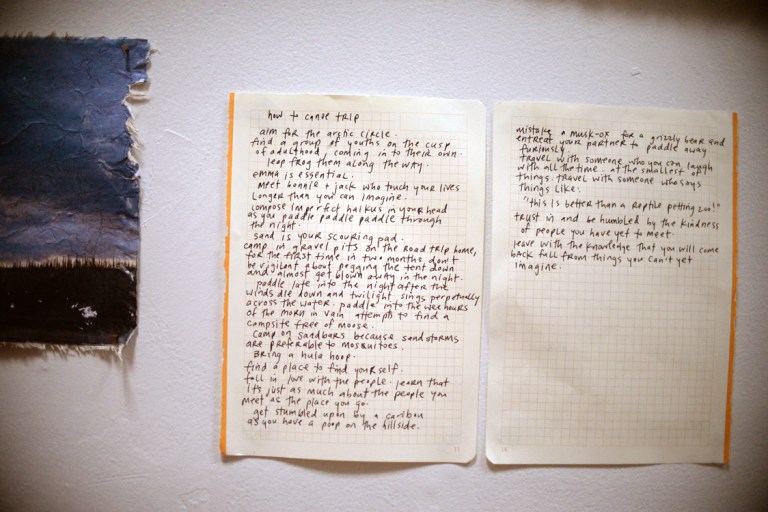 how to canoe trip
aim for the arctic circle.
find a group of youths on the cusp
of adulthood, coming in to their own.
leap frog them along the way.
emma is essential.
meet bonnie + jack who touch your lives
longer than you can imagine.
compose imperfect haikus in your head
as you paddle paddle paddle through
the night.
sand is your scouring pad.
camp in gravel pits on the road trip home,
for the first time in two months don't
be vigilant about pegging the tent down
and almost get blown away in the night.
paddle late into the night after the
winds die down and twilight sings perpetually
across the water. paddle into the wee hours
of the morn in vain attempts to find a
campsite free of moose.
camp on sandbars because sandstorms
are preferable to mosquitoes.
Bring a hula hoop.
find a place to find yourself.
fall in love with the people. learn that
it's just as much about the people you
meet as the place you go.
get stumbled upon by a caribou
as you have a poop on the hillside.
11
mistake a musk-ox for a grizzly bear and
entreat your partner to paddle away
furiously.
travel with someone who you can laugh
with all the time. at the smallest of
things. travel with someone who says
things like:
"this is better than a Reptile petting zoo!"
trust in and be humbled by the kindness
of people you have yet to meet.
leave with the knowledge that you will come
back full from things you can't yet
imagine.